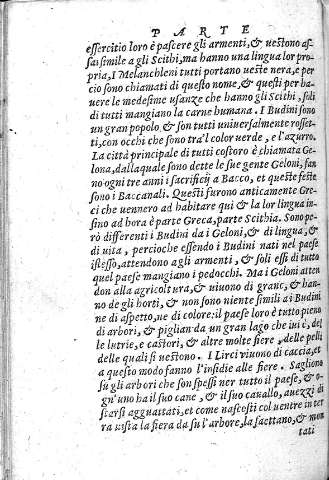 PARTE
essercitio loro è pascere gli armenti, & uestono as-
sai simile a gli Scithi, ma hanno una lingua lor pro
pria, I Melanchleni tutti portano ueste nera, e per
cio sono chiamati di questo nome, & questi per ha-
uere le medesime usanze che hanno gli Scithi, soli
di tutti mangiano la carne humana. I Budini sono
un gran popolo, & son tutti uniuersalmente rosset-
ti, con occhi che sono tra'l color uerde, e l'azurro.
La città principale di tutti costoro è chiamata Ge-
lona, dallaquale sono dette le sue gente Geloni, fan
no ogni tre anni i sacrificij a Bacco, et queste feste
sono i Baccanali. Questi furono anticamente Gre-
ci che uennero ad habitare qui & la lor lingua in-
sino ad hora è parte Greca, parte Scithia. Sono pe-
rò differenti i Budini da i Geloni, & di lingua, &
di uita, percioche essendo i Budini nati nel paese
istesso, attendono agli armenti, & soli essi di tutto
quel paese mangiano i pedocchi. Ma i Geloni atten
don alla agricoltura, & uiuono di grano, & han-
no de gli horti, & non sono niente simili ai Budini
ne di aspetto, ne di colore: il paese loro è tutto pieno
di arbori, & piglian da un gran lago che iui è, del
le lutrie, e castori, & altre molte fiere, delle pelli
delle quali si uestono. I Lirci uiuono di caccia, et
a questo modo fanno l'insidie alle fiere. Sagliono
sù gli arbori che son spessi per tutto il paese, & o-
gn'uno ha il suo cane, & il suo cauallo, auezzi di
starsi agguattati, et come nascosti col uentre in ter
ra uista la fiera da su l'arbore, la saettano, & mon
tati